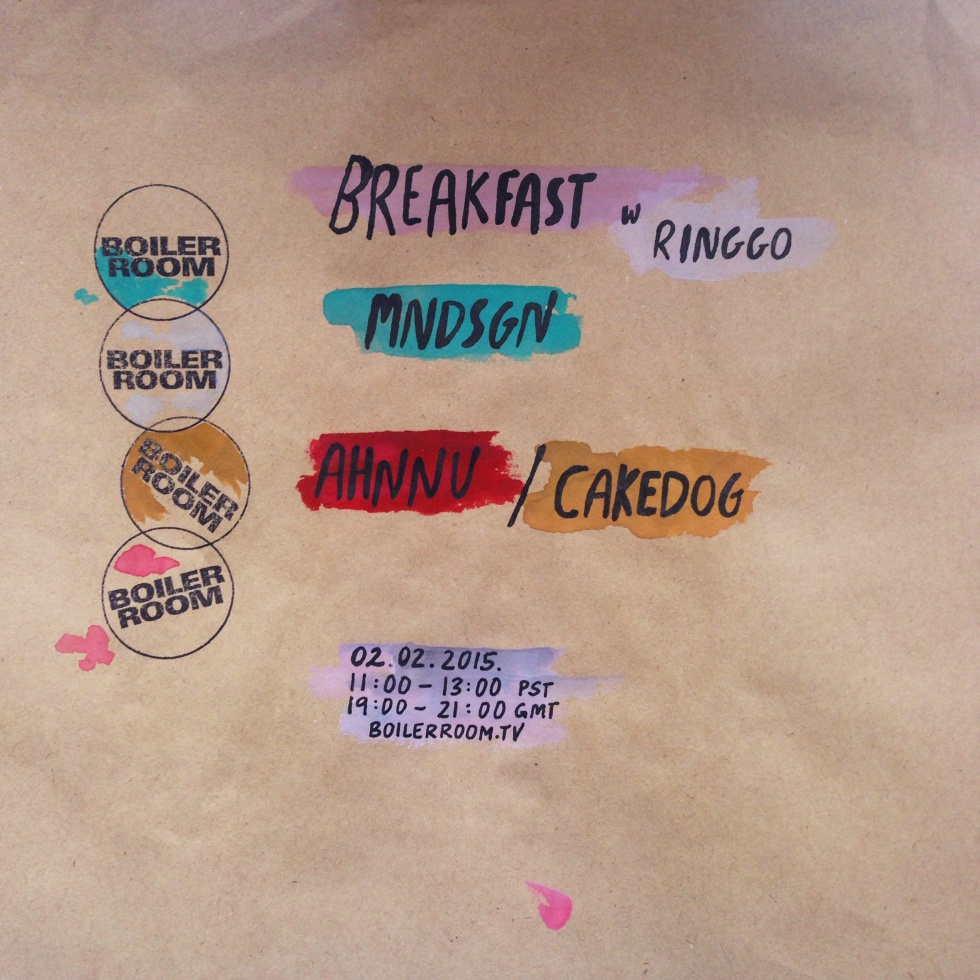 BREAKFAST w RINGGO
MNDSGN
AHNNU / CAKEDOG
02.02.2015.
11:00 – 13:00 PST
19:00 – 21:00 GMT
BOILERROOM.TV
BOILER
ROOM
BOILER
ROOM
BOILER
ROOM
BOILER
ROOM